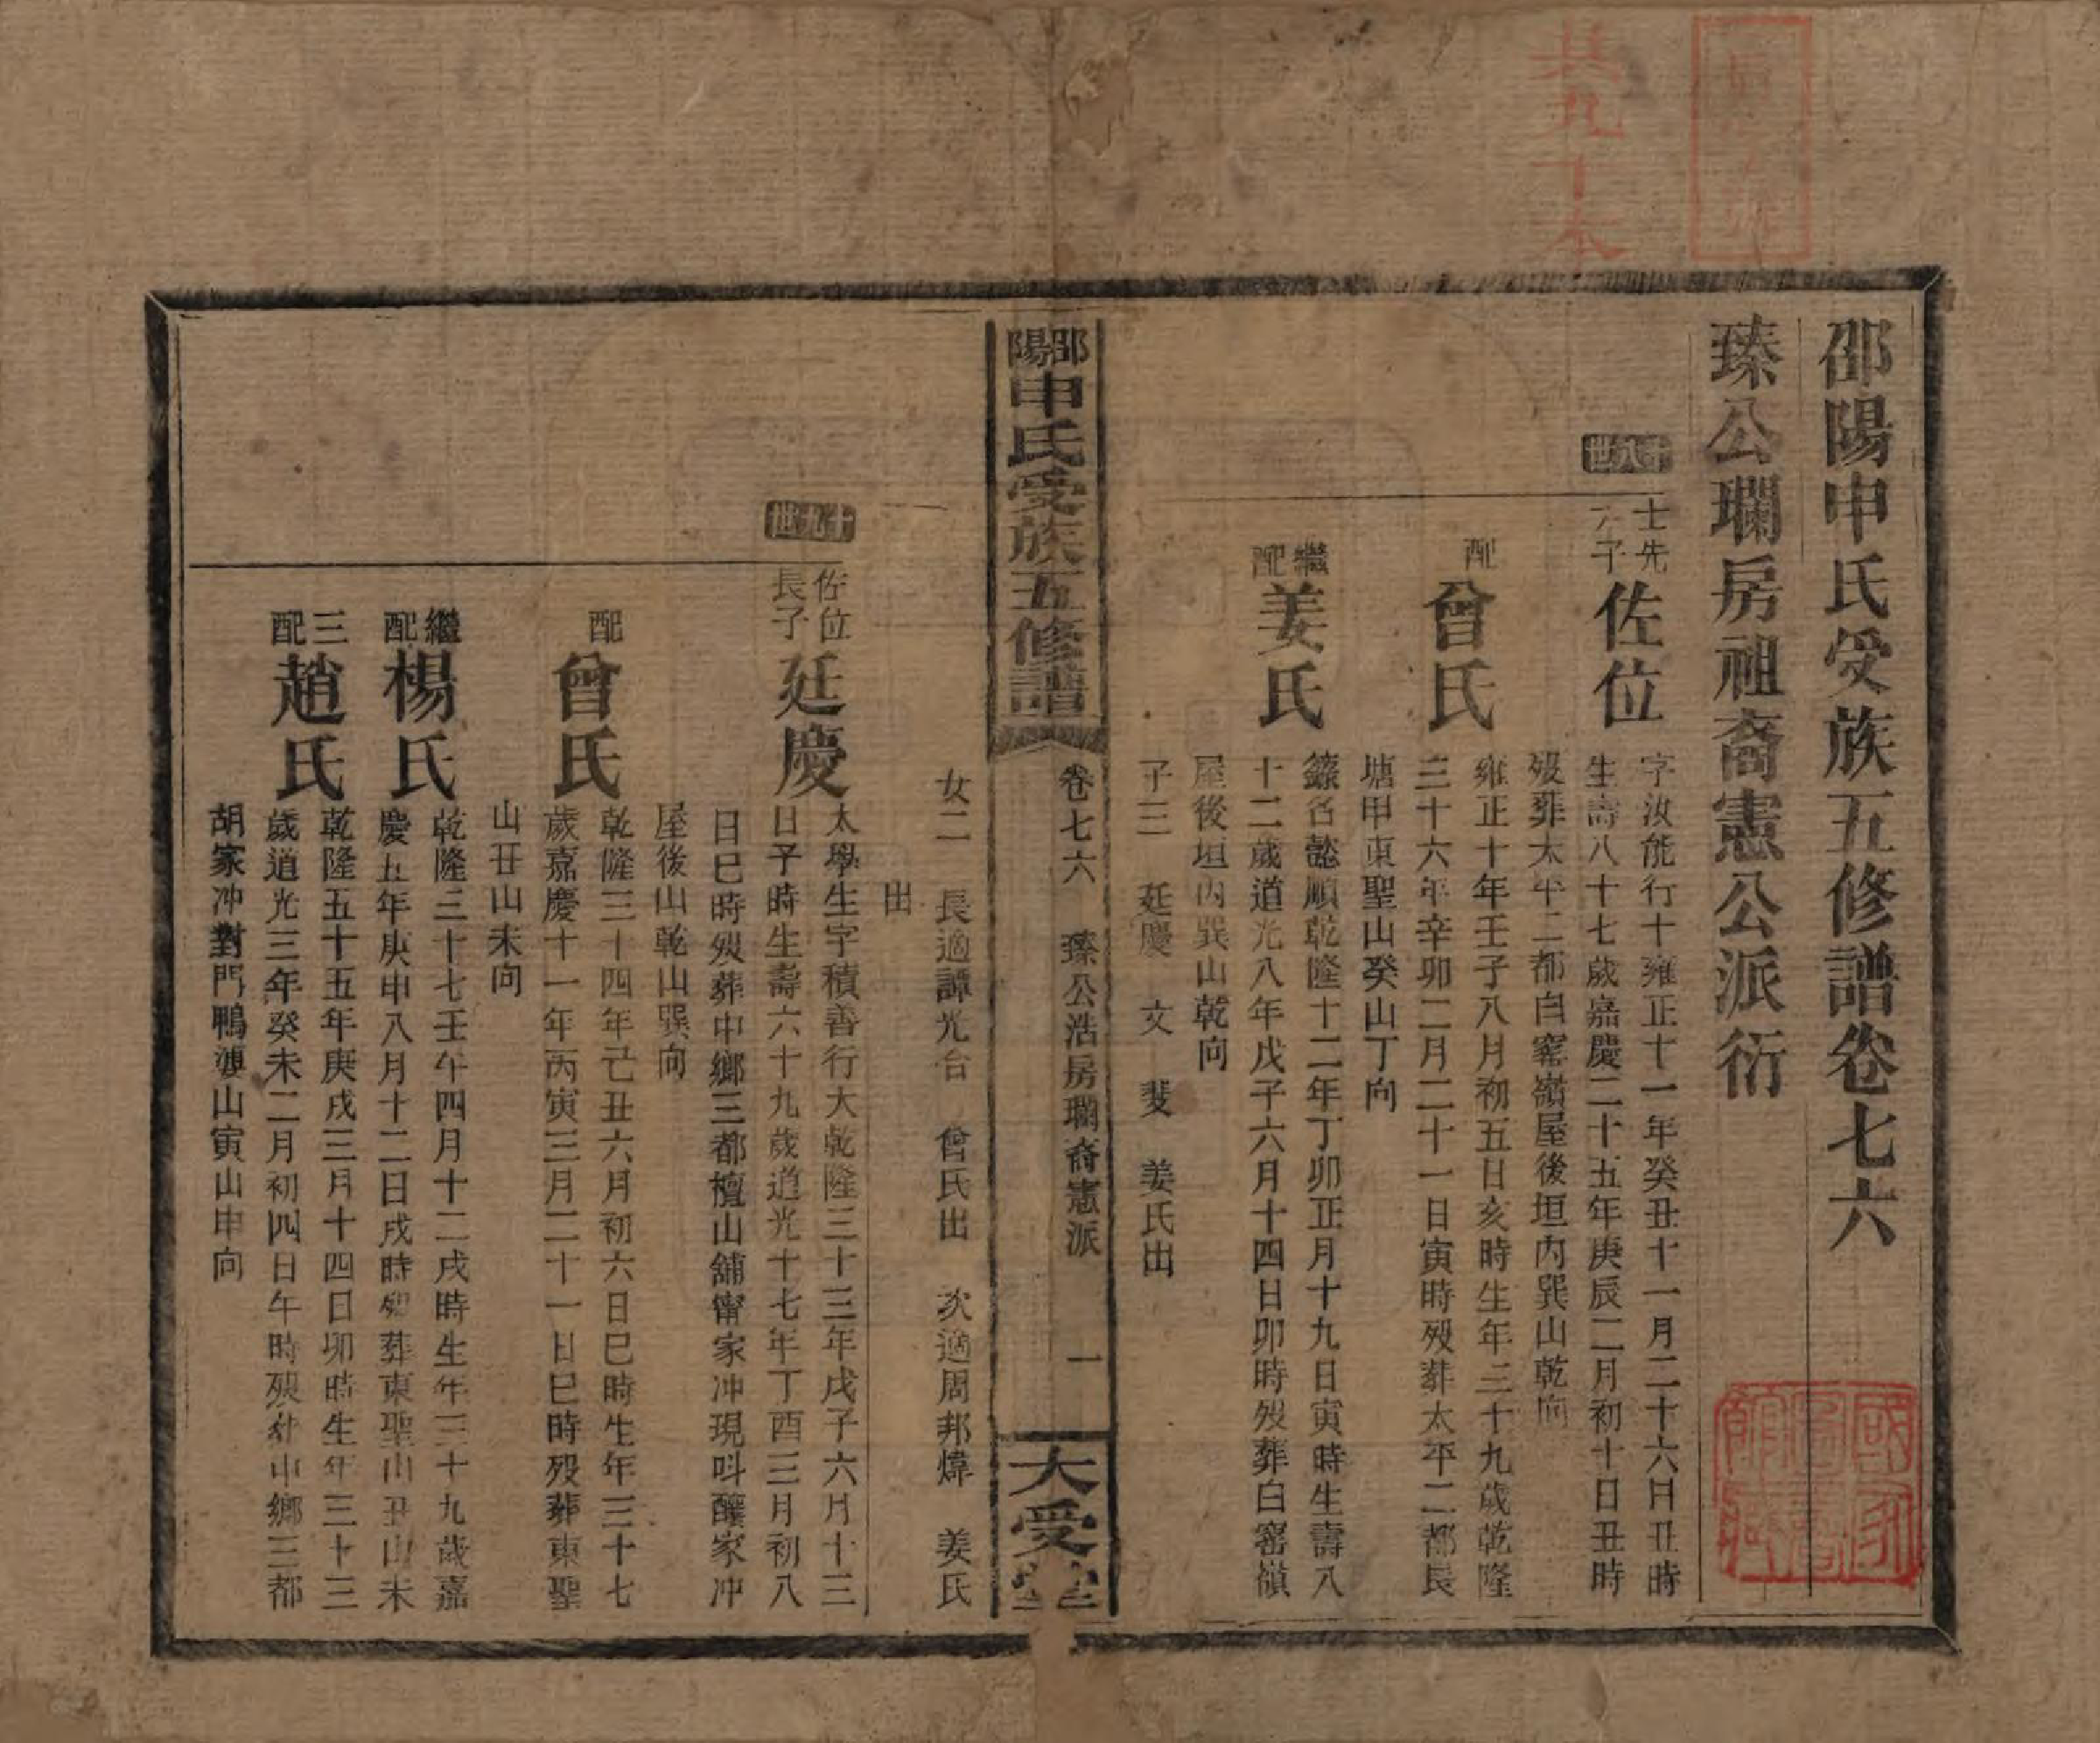 共九十本
邵陽申氏受族五修譜卷七六
臻公瓓房祖裔憲公派衍
十八世
士先
子
佐位
字汝能行十雍正十一年癸丑十一月二十六日丑時
生壽八十七歲嘉慶二十五年庚辰二月初十日丑時
歿葬太平二都白窰嶺屋後垣內巽山乾向
配
曾氏
雍正十年壬子八月初五日亥時生年三十九歲乾隆
三十六年辛卯二月二十一日寅時歿葬太平二都長
塘甲東聖山癸山丁向
繼配
姜氏
錄名懿順乾隆十二年丁卯正月十九日寅時生壽八
十二歲道光八年戊子六月十四日卯時歿葬白窰嶺
屋後垣內巽山乾向
子三 廷慶 文 斐 姜氏出
邵陽申氏受族五修譜 卷七六 臻公浩房瓓裔憲派 一 大受堂
女二 長適譚光台 曾氏出 次適周邦煒 姜氏
出
十九世
佐位
長子
廷慶
太學生字積善行大乾隆三十三年戊子六月十三
日子時生壽六十九歲道光十七年丁酉三月初八
日巳時歿葬中鄉三都檀山舖甯家冲現呌釀家冲
屋後山乾山巽向
配
曾氏
乾隆三十四年己丑六月初六日巳時生年三十七
歲嘉慶十一年丙寅三月二十一日巳時歿葬東聖
山丑山未向
繼配
楊氏
乾隆三十七壬午四月十二戌時生年三十九歲嘉
慶五年庚申八月十二日戌時歿葬東聖山丑山未
三配
趙氏
乾隆五十五年庚戌三月十四日卯時生年三十三
歲道光三年癸未二月初四日午時歿葬中鄉三都
胡家冲對門鴨婆山寅山申向